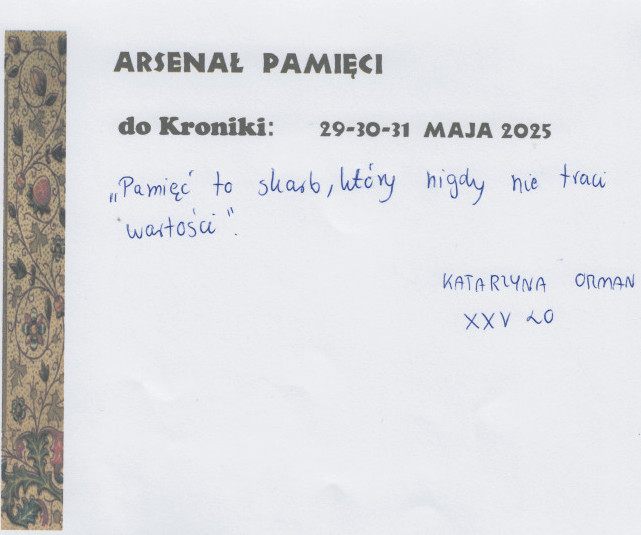 ARSENAŁ PAMIĘCI
do Kroniki: 29-30-31 MAJA 2025
„Pamięć to skarb, który nigdy nie traci
wartości".
KATARZYNA ORMAN
XXV LO